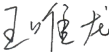 王唯龙